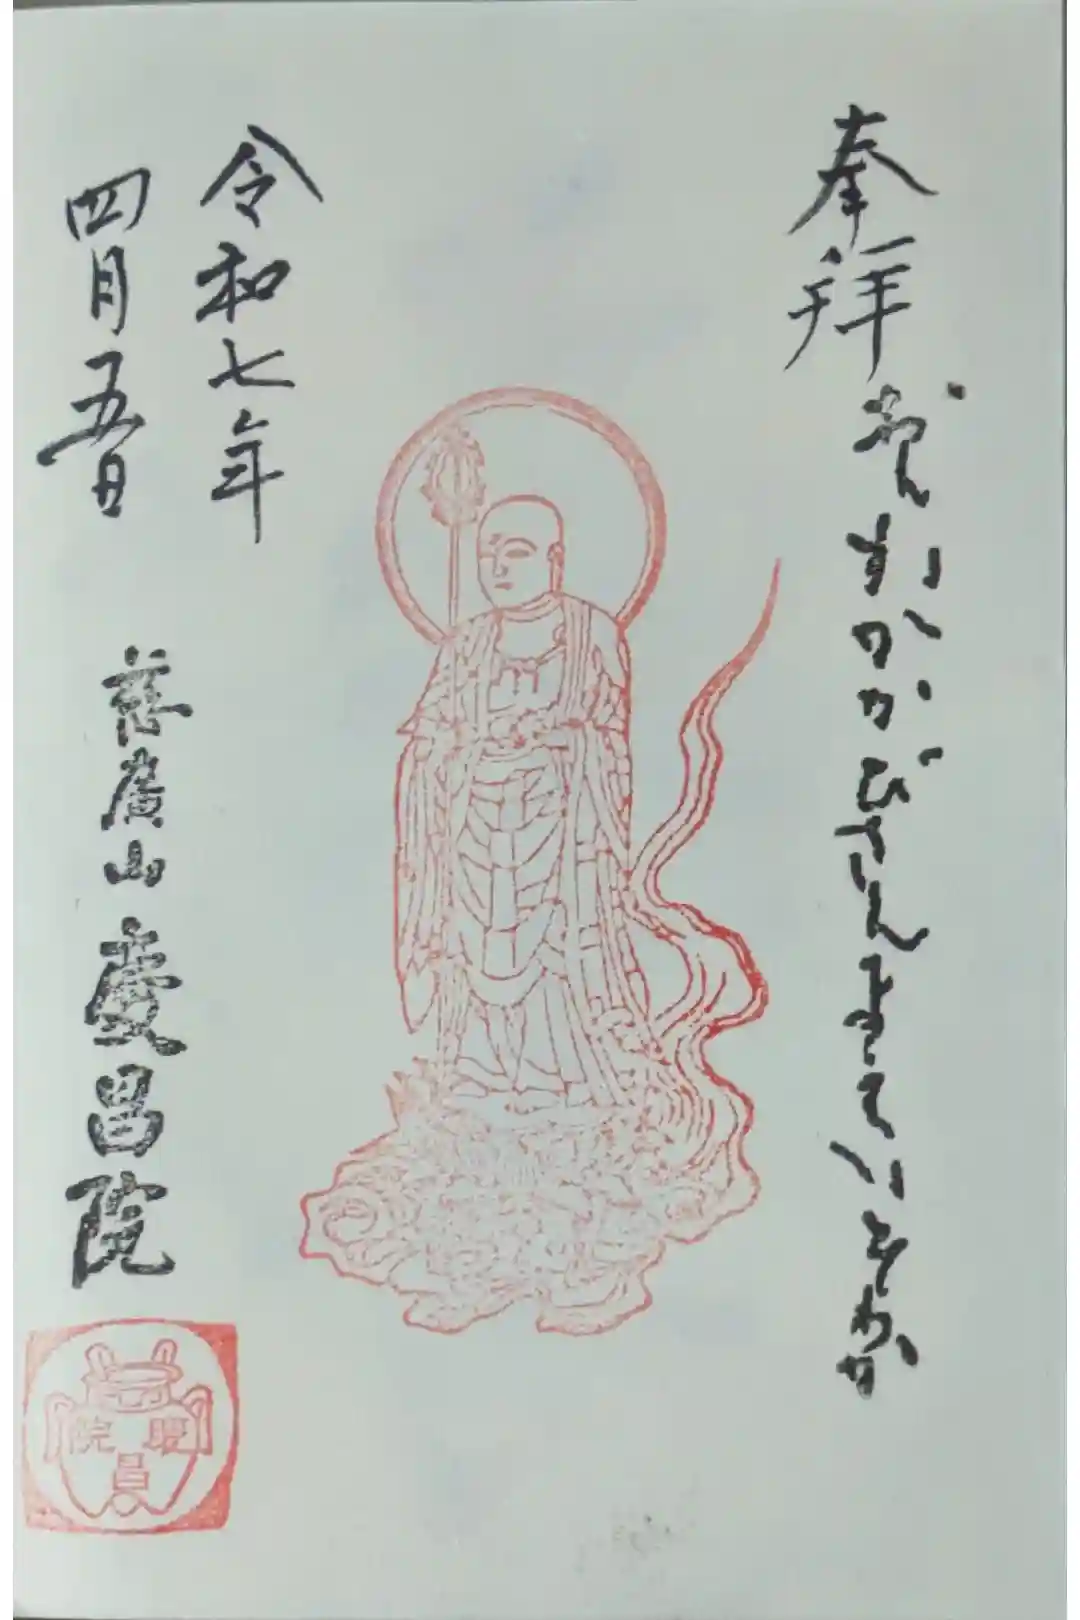 奉拝
おんかかかびさんまえいそわか
令和七年
四月五日
慈廣山 慶昌院
慶昌院